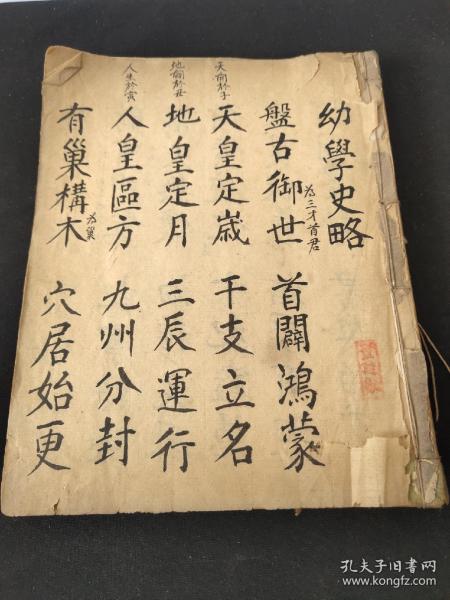 幼學史略
盤古御世為三才首君 首闢鴻蒙
天開於子
天皇定歲 干支立名
地闢於丑
地皇定月 三辰運行
人生於寅
人皇區方 九州分封
有巢構木為巢 穴居始更
孔夫子旧书网
www.kongfz.com